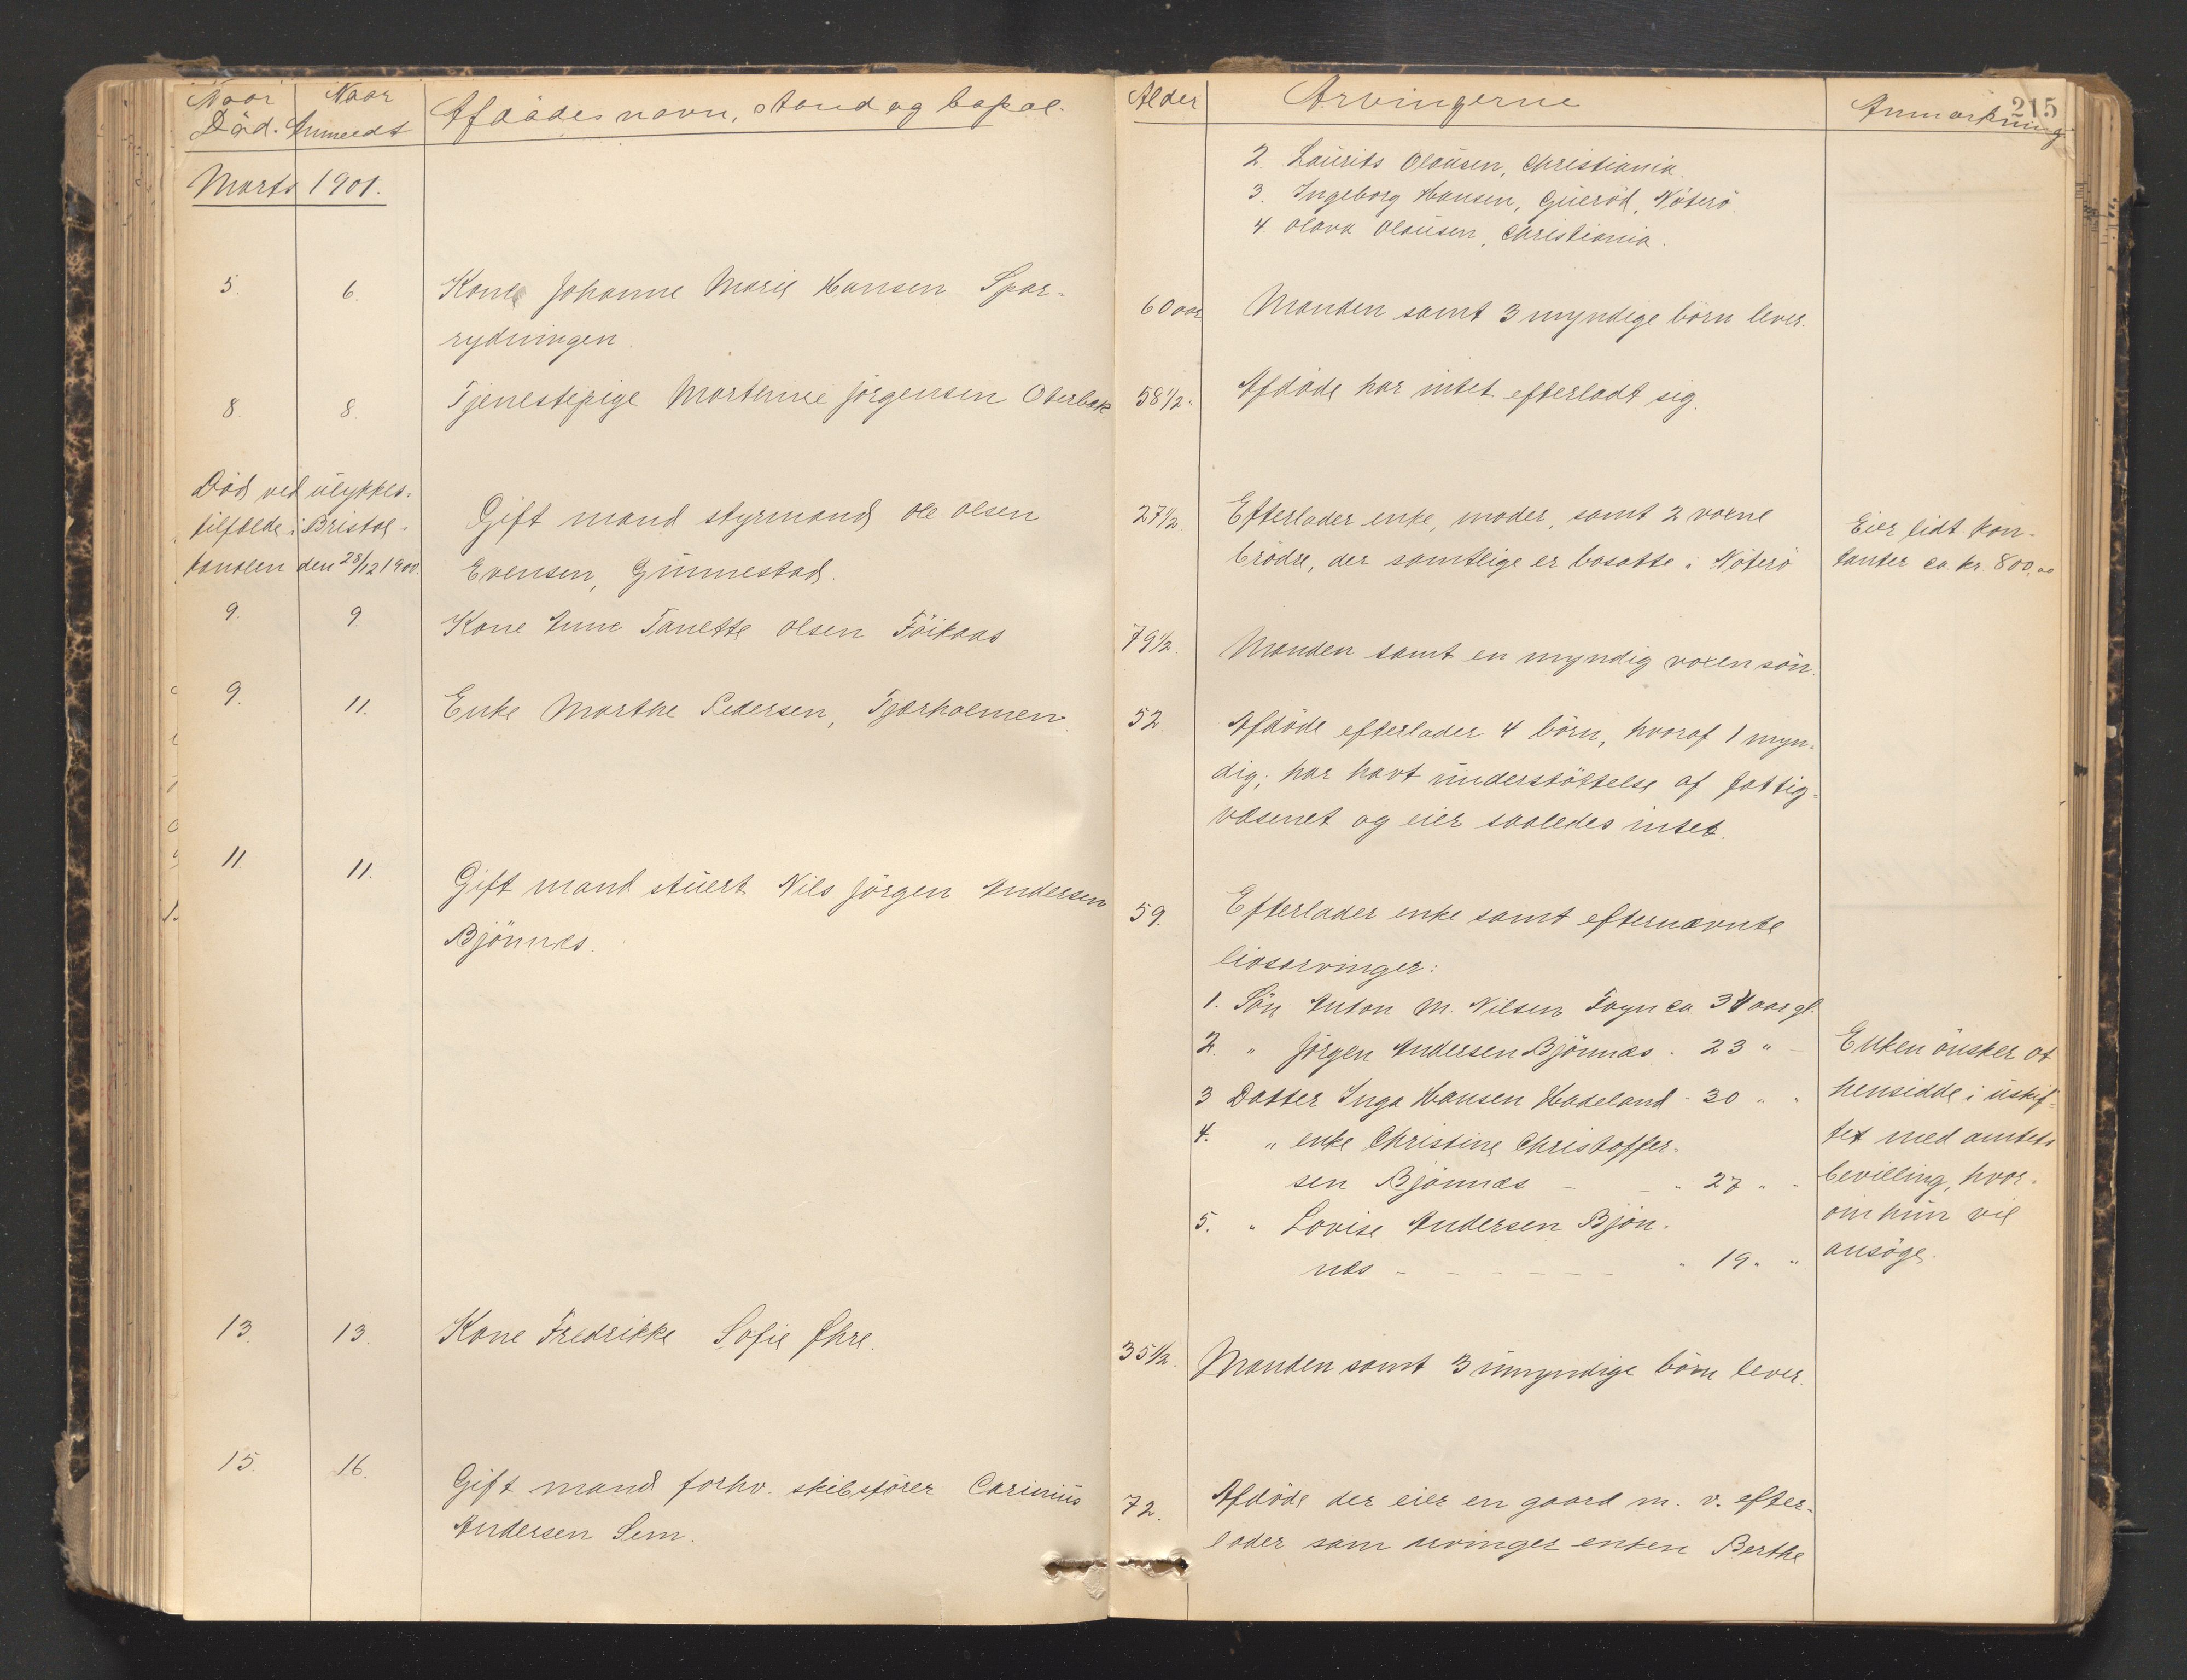 Naar Død. Naar Anmeldt Afdødes navn, stand og bopæl. Alder Arvingerne Anmærkning 215
Marts 1901.
2. Laurits Olausen, Christiania.
3. Ingeborg Hansen, Gueröd, Nöterö.
4. Olava Olausen, Christiania.
5. 6. Kone Johanne Marie Hansen Spar-
rydningen.
60 aar Manden samt 3 myndige börn lever.
8. 8. Tjenestepige Marthine Jörgensen Oterbæk
58 1/2 " Afdöde har intet efterladt sig.
Död ved ulykkes-
tilfælde i Bristol-
kanalen den 28/12 1900.
Gift mand styrmand Ole Olsen
Evensen, Gunnestad.
27 1/2. Efterlader enke, moder, samt 2 voxne
brödre, der samtlige er bosatte i Nöterö
Eier lidt kon-
tanter ca. kr. 800,00
9. 9. Kone Anne Tanette Olsen Föikaas
79 1/2. Manden samt en myndig voxen sön.
9. 11. Enke Marthe Pedersen, Tjærholmen
52. Afdöde efterlader 4 börn, hvoraf 1 myn-
dig; har havt understöttelse af fattig-
væsenet og eier saaledes intet.
11. 11. Gift mand stuert Nils Jörgen Andersen
Bjönnes.
59. Efterlader enke samt efternævnte
livsarvinger:
1. Sön Anton M. Nilsen Fayn ca 34 aar gl.
2. " Jörgen Andersen Bjönnæs - 23 " -
3 Datter Inga Hansen Hadeland - 30 " "
4. " enke Christine Christoffer-
sen Bjönnæs - - " 27 " "
5. " Lovise Andersen Bjön-
næs - - - - - - " 19 " "
Enken önsker at
hensidde i uskif-
tet med amtets
bevilling, hvor-
om hun vil
ansöge.
13. 13. Kone Fredrikke Sofie Ihre.
35 1/2. Manden samt 3 umyndige börn lever.
15. 16. Gift mand forhv. skibsförer Carinius
Andersen Sem.
72. Afdöde der eier en gaard m. v. efter-
lader som arvinger enken Berthe